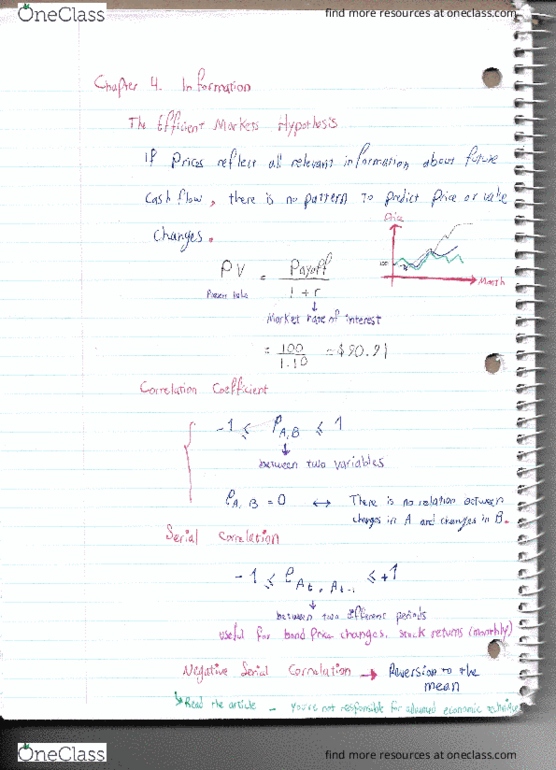 OneClass
find more resources at oneclass.com
Chapter 4. Information
The Efficient Markets Hypothesis
If Prices reflect all relevant information about future
Cash flow, there is no pattern to predict price or value
Changes.
Price
Month
PV = Payoff / 1 + r
Market rate of interest
= 100 / 1.10 = $90.91
Correlation Coefficient
-1 ≤ ρA,B ≤ 1
between two variables
ρA,B = 0 ↔ There is no relation between
changes in A and changes in B.
Serial Correlation
-1 ≤ ρAt, At-1 ≤ +1
between two different periods
useful for bond price changes, stock returns (monthly)
Negative Serial Correlation → Reversion to the
mean
Read the article - you're not responsible for advanced economic technique
OneClass
find more resources at oneclass.com